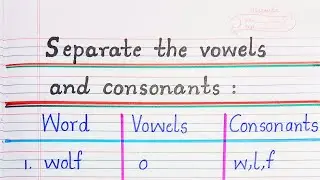 Separate the vowels
and consonants :
Word Vowels Consonants
1. wolf o w,l,f